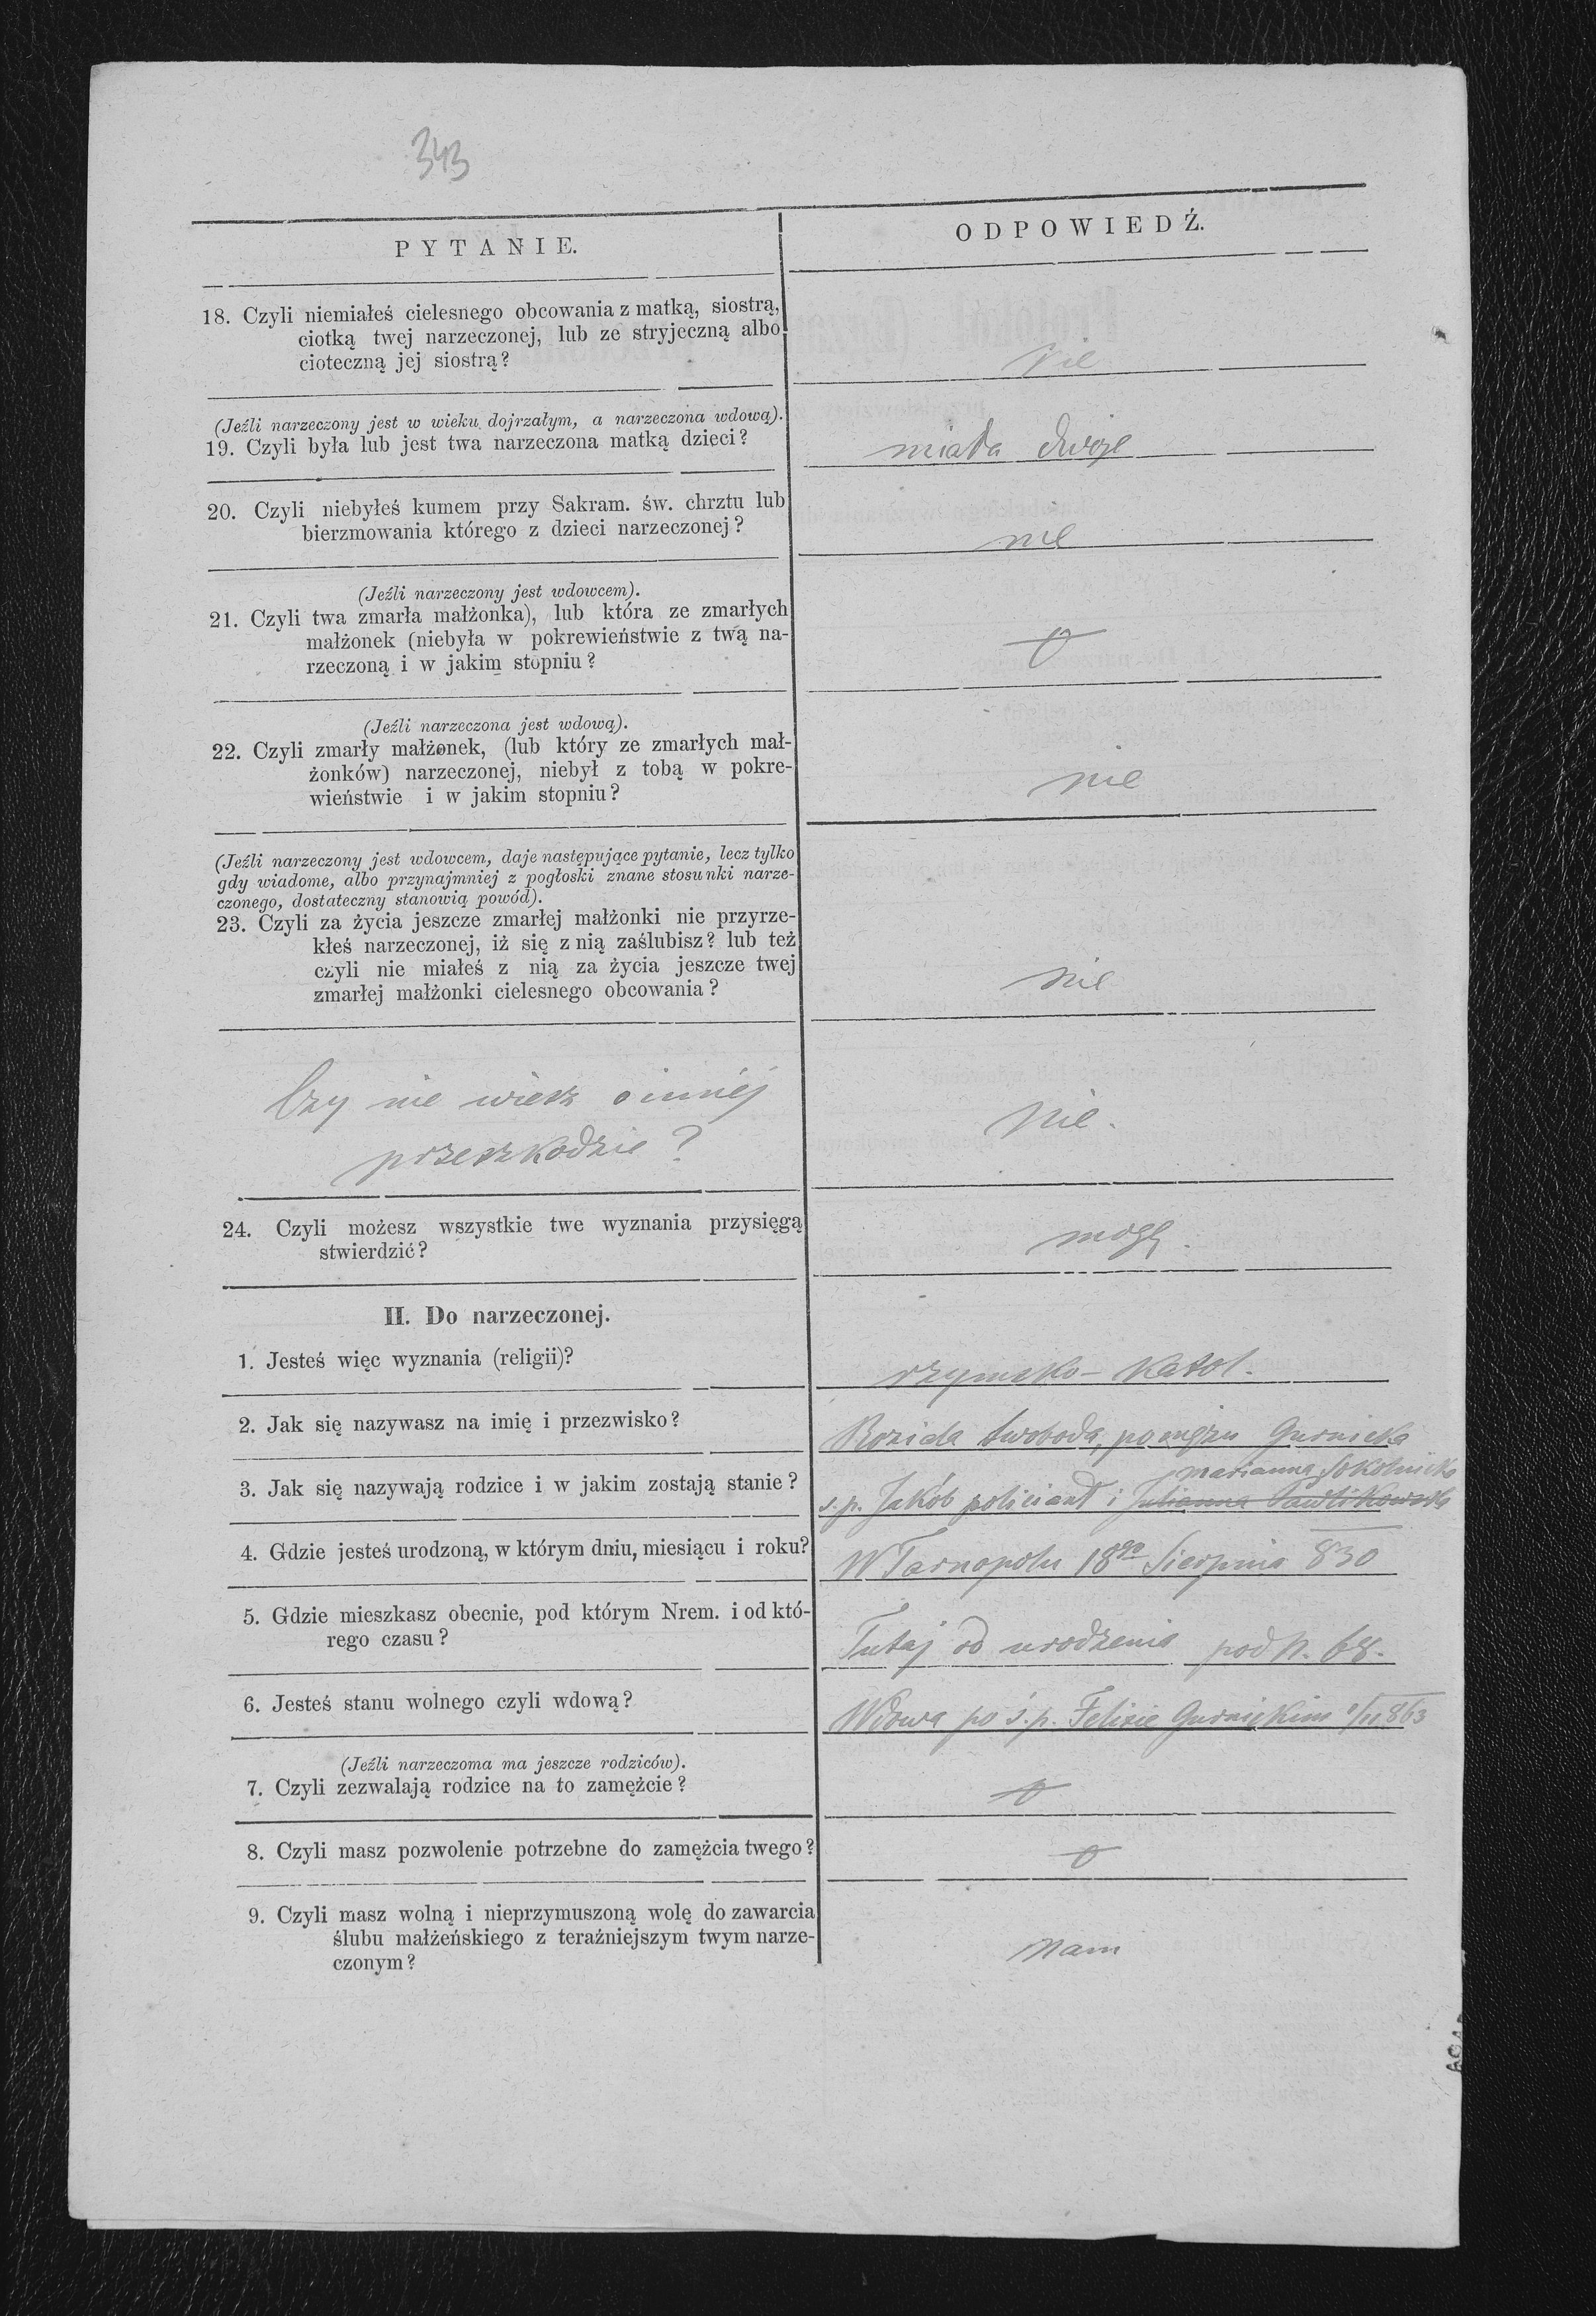 343
PYTANIE.
ODPOWIEDŹ.
18. Czyli niemiałeś cielesnego obcowania z matką, siostrą,
ciotką twej narzeczonej, lub ze stryjeczną albo
cioteczną jej siostrą?
nie
(Jeźli narzeczony jest w wieku dojrzałym, a narzeczona wdową).
19. Czyli była lub jest twa narzeczona matką dzieci?
miała dwoje
20. Czyli niebyłeś kumem przy Sakram. św. chrztu lub
bierzmowania którego z dzieci narzeczonej?
nie
(Jeźli narzeczony jest wdowcem).
21. Czyli twa zmarła małżonka), lub która ze zmarłych
małżonek (niebyła w pokrewieństwie z twą na-
rzeczoną i w jakim stopniu?
0
(Jeźli narzeczona jest wdową).
22. Czyli zmarły małżonek, (lub który ze zmarłych mał-
żonków) narzeczonej, niebył z tobą w pokre-
wieństwie i w jakim stopniu?
nie
(Jeźli narzeczony jest wdowcem, daje następujące pytanie, lecz tylko
gdy wiadome, albo przynajmniej z pogłoski znane stosunki narze-
czonego, dostateczny stanowią powód).
23. Czyli za życia jeszcze zmarłej małżonki nie przyrze-
kłeś narzeczonej, iż się z nią zaślubisz? lub też
czyli nie miałeś z nią za życia jeszcze twej
zmarłej małżonki cielesnego obcowania?
nie
Czy nie wiesz o innéj
przeszkodzie?
nie.
24. Czyli możesz wszystkie twe wyznania przysięgą
stwierdzić?
mogę.
II. Do narzeczonej.
1. Jesteś więc wyznania (religii)?
rzymsko-katol.
2. Jak się nazywasz na imię i przezwisko?
Swoboda, po mężu Gurnicka
3. Jak się nazywają rodzice i w jakim zostają stanie?
Marianna Sokolnicka
ś. p. Jakób policiant i Julianna Pawlikowska
4. Gdzie jesteś urodzoną, w którym dniu, miesiącu i roku?
W Tarnopolu 18go Sierpnia 830
5. Gdzie mieszkasz obecnie, pod którym Nrem. i od któ-
rego czasu?
Tutaj od urodzenia pod n. 68.
6. Jesteś stanu wolnego czyli wdową?
Wdowa po ś. p. Felixie Gurnickim 863
(Jeźli narzeczoma ma jeszcze rodziców).
7. Czyli zezwalają rodzice na to zamężcie?
0
8. Czyli masz pozwolenie potrzebne do zamężcia twego?
0
9. Czyli masz wolną i nieprzymuszoną wolę do zawarcia
ślubu małżeńskiego z teraźniejszym twym narze-
czonym?
mam